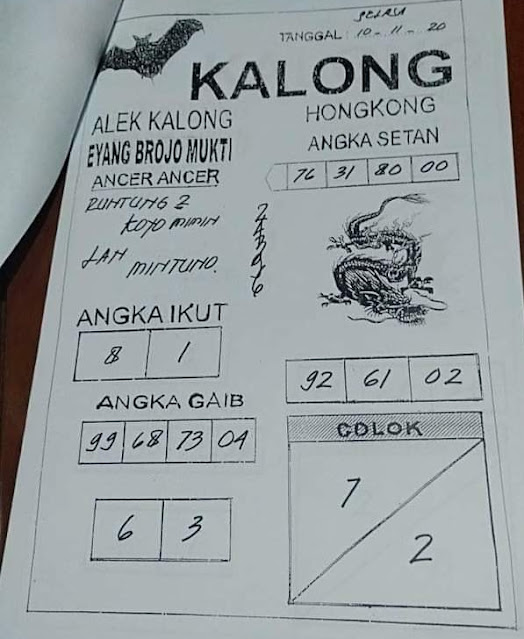 SELASA
TANGGAL : 10 - 11 - 20
KALONG
ALEK KALONG
EYANG BROJO MUKTI
ANCER ANCER
RUNTUNG 2
KOYO MIMIN
LAN
MINTUNO.
HONGKONG
ANGKA SETAN
76 31 80 00
ANGKA IKUT
8 1
ANGKA GAIB
99 68 73 04
6 3
92 61 02
COLOK
7
2